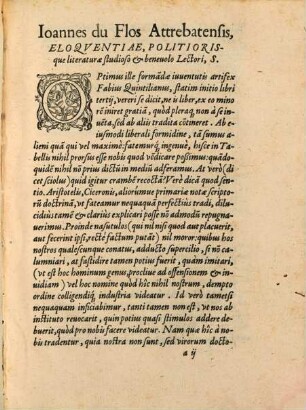 Ioannes du Flos Attrebatensis,
ELOQVENTIAE, POLITIORIS-
que literaturæ studioso & beneuolo Lectori, S.
OPtimus ille formãdæ iuuentutis artifex
Fabius Quintilianus, statim initio libri
tertij, vereri se dicit, ne is liber, ex eo mino
rẽ iniret gratiã, quòd pleraq; non à se in-
uẽta, sed ab alijs tradita cõtineret. Ab e-
iusmodi liberali formidine, tã sumus a-
lieni quã qui vel maximè: fatemurq; ingenuè, hîsce in Ta-
bellis nihil prorsus esse nobis quod vẽdicare possimus: quãdo-
quidẽ nihil nõ prius dictũ in mediũ adferamus. At verò (di
cet sciolus) quid igitur crambẽ recoctã? Verò dicã quod sen-
tio. Aristotelis, Ciceronis, aliorumue primariæ notæ scripto-
rũ doctrinã, vt fateamur nequaquã perfectiùs tradi, dilu-
cidiùs tamẽ & clariùs explicari posse nõ admodũ repugna-
uerimus. Proinde nasutulos (qui nil nisi quod aut placuerit,
aut fecerint ipsi, rectè factum putãt) nil moror: quibus hos
nostros qualescunque conatus, adducto supercilio, si nõ ca-
lumniari, at fastidire tamen potius fuerit, quàm imitari,
(vt est hoc hominum genus, procliue ad offensionem & in-
uidiam) vel hoc nomine quòd hîc nihil nostrum, dempto
ordine colligendiq; industria videatur. Id verò tametsi
nequaquam inficiabimur, tanti tamen non est, vt nos ab
instituto reuocarit, quin potius quasi stimulos addere de-
buerit, quòd pro nobis facere videatur. Nam quæ hîc à no
bis tradentur, quia nostra non sunt, sed virorum docto-
a ij